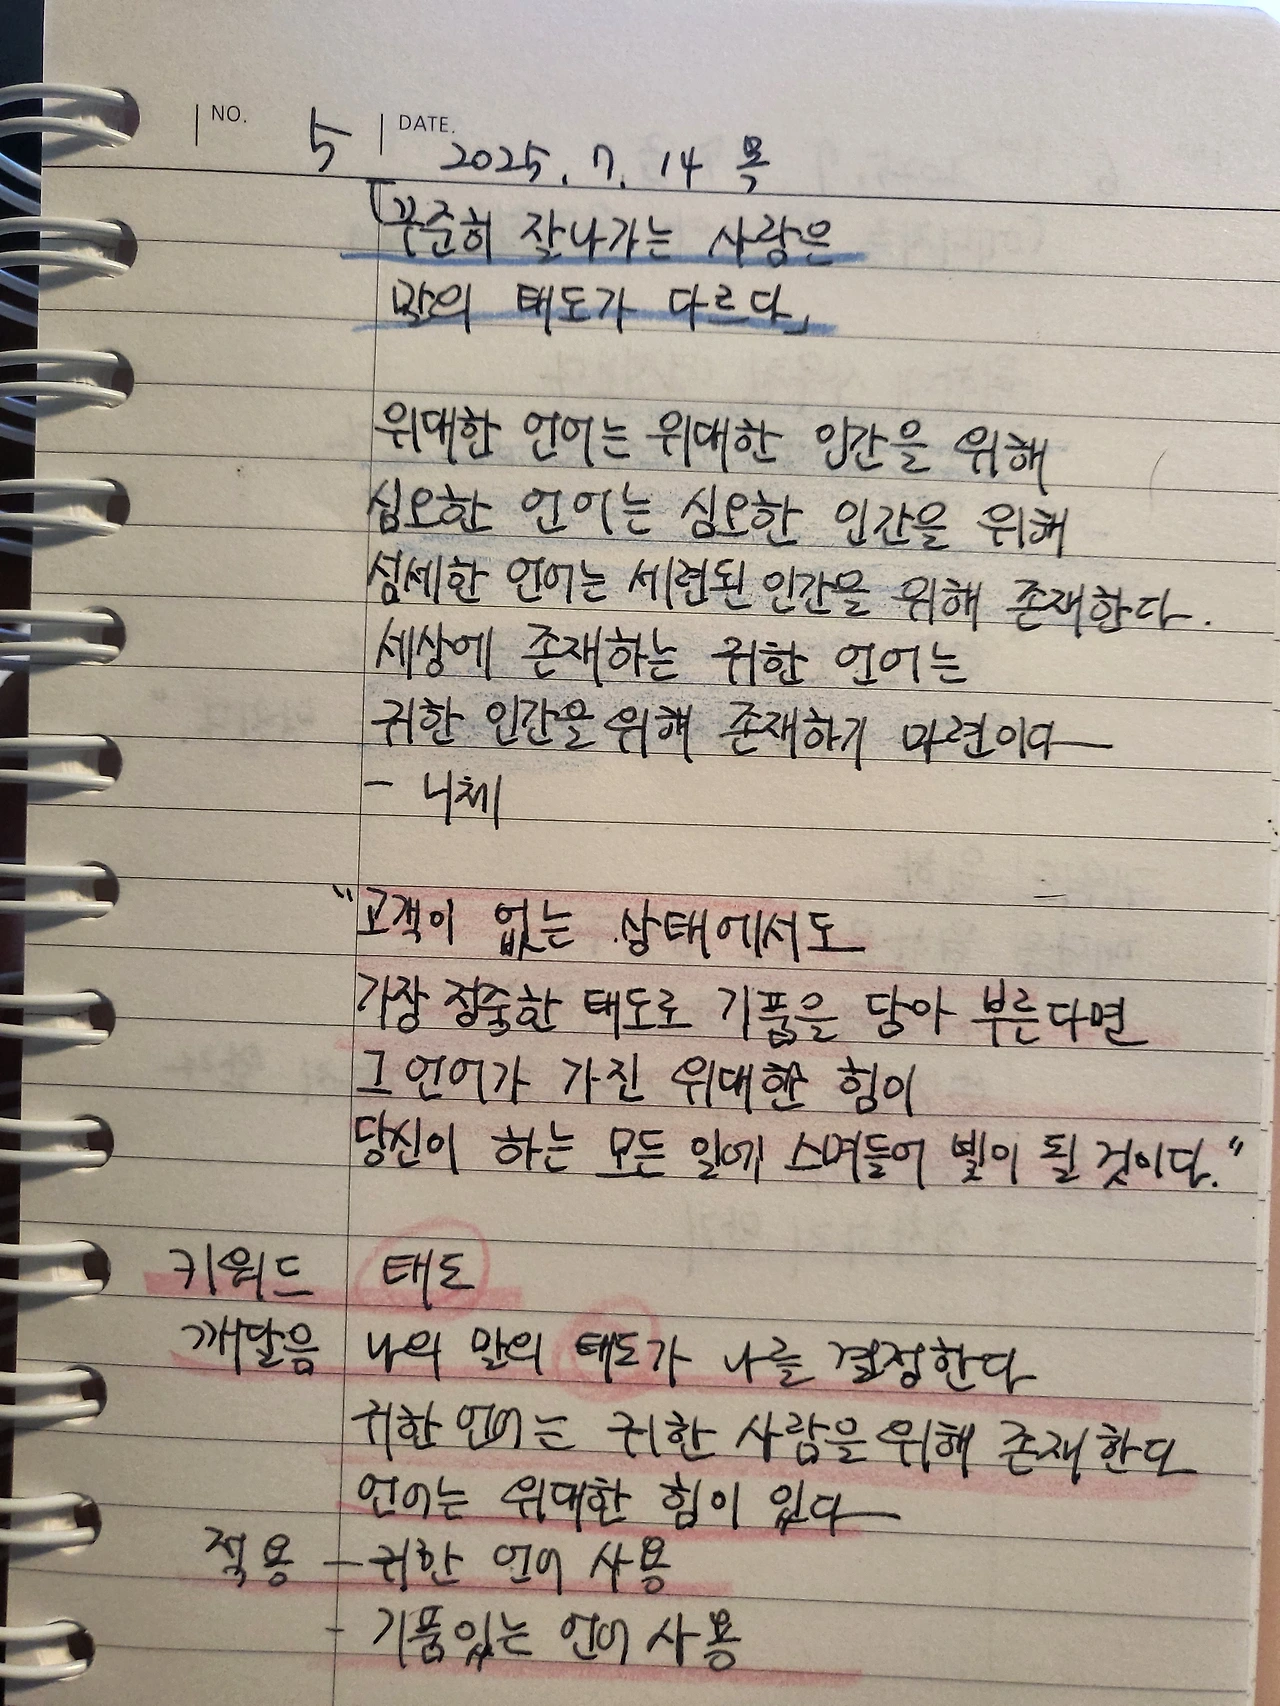 NO. 5 DATE. 2025. 7. 14 목
「꾸준히 잘나가는 사람은
말의 태도가 다르다」
위대한 언어는 위대한 인간을 위해
심오한 언어는 심오한 인간을 위해
섬세한 언어는 세련된 인간을 위해 존재한다.
세상에 존재하는 귀한 언어는
귀한 인간을 위해 존재하기 마련이다
- 니체
"고객이 없는 상태에서도
가장 정중한 태도로 기품을 담아 부른다면
그 언어가 가진 위대한 힘이
당신이 하는 모든 일에 스며들어 빛이 될 것이다."
키워드 태도
깨달음 나의 말의 태도가 나를 결정한다
귀한 언어는 귀한 사람을 위해 존재한다
언어는 위대한 힘이 있다
적용 - 귀한 언어 사용
- 기품있는 언어 사용